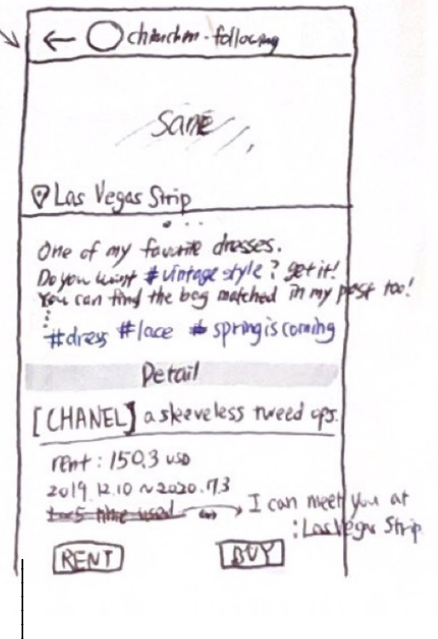 ← chinchin · following
Same
Las Vegas Strip
One of my favorite dresses.
Do you want #vintage style? get it!
You can find the bag matched in my post too!
#dress #lace #springiscoming
Detail
[CHANEL] a sleeveless tweed ops.
rent: 150,3 USD
2019.12.10 ~ 2020.
time used
I can meet you at
: Las Vegas Strip
RENT BUY